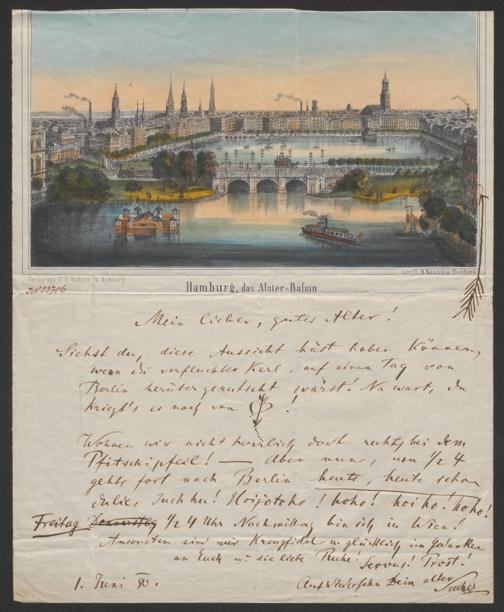 Verlag des J. F. Richter in Hamburg
Lith. v. H. Nanning Hamburg
Hamburg, das Alster-Bassin
Mein lieber, guter Alter!
Siehst du, diese Aussicht häst haben können,
wenn du verfluchter Kerl, auf einen Tag von
Berlin herüber gerutscht wärst! Na wart, du
kriegst es noch von !
Wohnen wir nicht herrlich dort rechts bei dem
Pfitschipfeil! — Aber nun, um 1/2 4
gehts fort nach Berlin heute, heute schon
Juch hu! Hojotoho! hoho! hoiho! hoho!
Freitag Donnerstag 1/2 4 Uhr Nachmittag bin ich in Wien!
Ansonsten sind wir kreuzfidel u. glücklich im Gedanken
an Euch u. die liebe Ruhe! Servus! Prost!
1. Juni
Auf Wiedersehn Dein alter